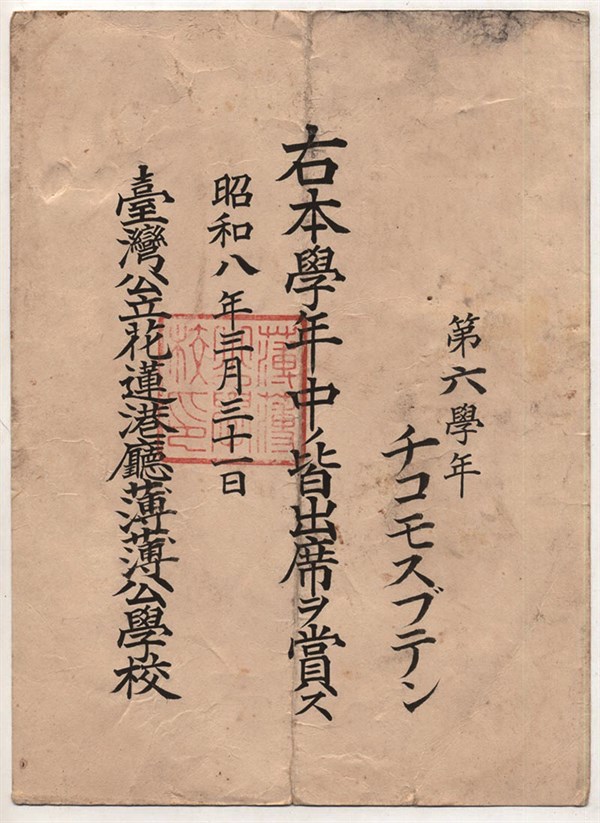 第六學年
チコモスブテン
右本學年中ノ皆出席ヲ賞ス
昭和八年三月三十一日
臺灣公立花蓮港廳薄薄公學校
薄薄公學校印